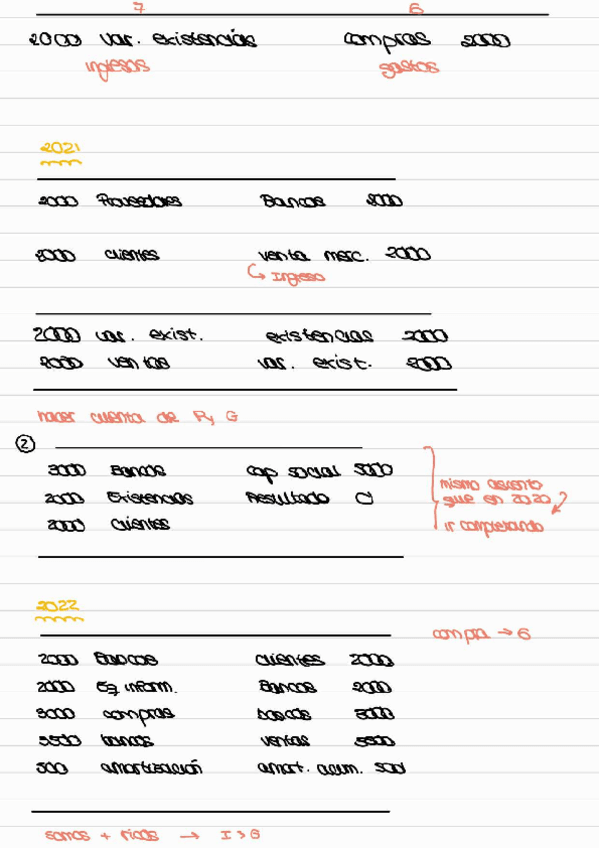 7 6
2000 var. existencias compras 2000
ingresos gastos
2021
2000 Proveedores Bancos 2000
2000 clientes venta merc. 2000
↳ Ingreso
2000 var. exist. existencias 2000
2000 ventas var. exist. 2000
hacer cuenta de P y G
②
3000 Bancos cap social 5000
2000 Existencias Resultado 0
2000 clientes
mismo asiento
que en 2020
ir completando
2022
compra → 6
2000 Bancos clientes 2000
2000 Eq inform. Bancos 2000
3000 compras bancos 3000
5500 bancos ventas 5500
500 amortización amort. acum. 500
somos + ricos → I > G